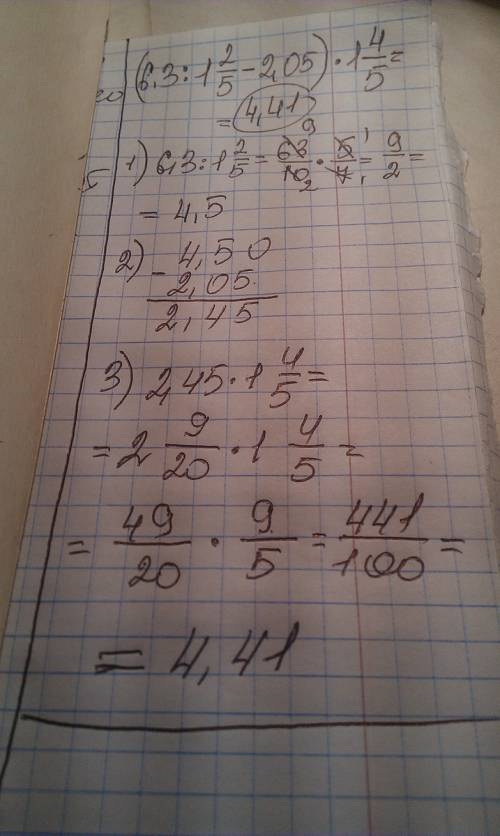 (6,3:1 2/5 - 2,05) · 1 4/5 =
= 4,41
1) 6,3:1 2/5 = 63/10 · 5/7 = 9/2 =
= 4,5
2) - 4,50
2,05
2,45
3) 2,45 · 1 4/5 =
= 2 9/20 · 1 4/5 =
= 49/20 · 9/5 = 441/100 =
= 4,41